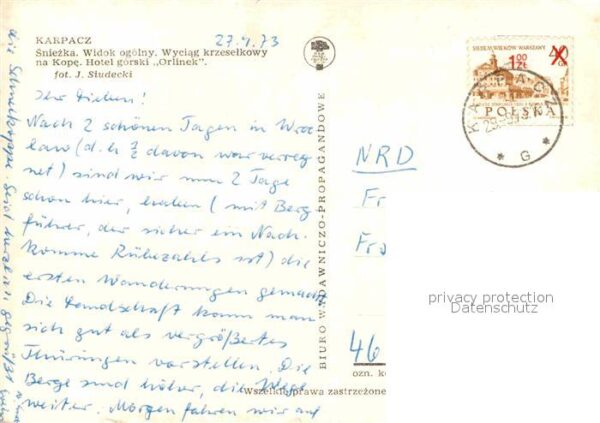 KARPACZ
Śnieżka. Widok ogólny. Wyciąg krzesełkowy
na Kopę. Hotel górski „Orlinek".
fot. J. Siudecki
27.9.73
Ihr Lieben!
Nach 2 schönen Tagen in Wroc
law (d.h. 3/2 davon war verreg
net) sind wir nun 2 Tage
schon hier, haben (mit Berg
führer, der sicher ein Nach-
komme Rübezahls ist) die
ersten Wanderungen gemacht
Die Landschaft kann man
sich gut als vergrößertes
Thüringen vorstellen. Die
Berge sind höher, die Wege
weiter. Morgen fahren wir auf
die Schneekoppe. Seid herzlich gegrüßt
BIURO WYDAWNICZO-PROPAGANDOWE
SIEDEM WIEKÓW WARSZAWY
1,00
ZŁ
POLSKA
KARPACZ
G
NRD
Fr
Fr
46
ozn. k
Wszelkie prawa zastrzeżone
privacy protection
Datenschutz